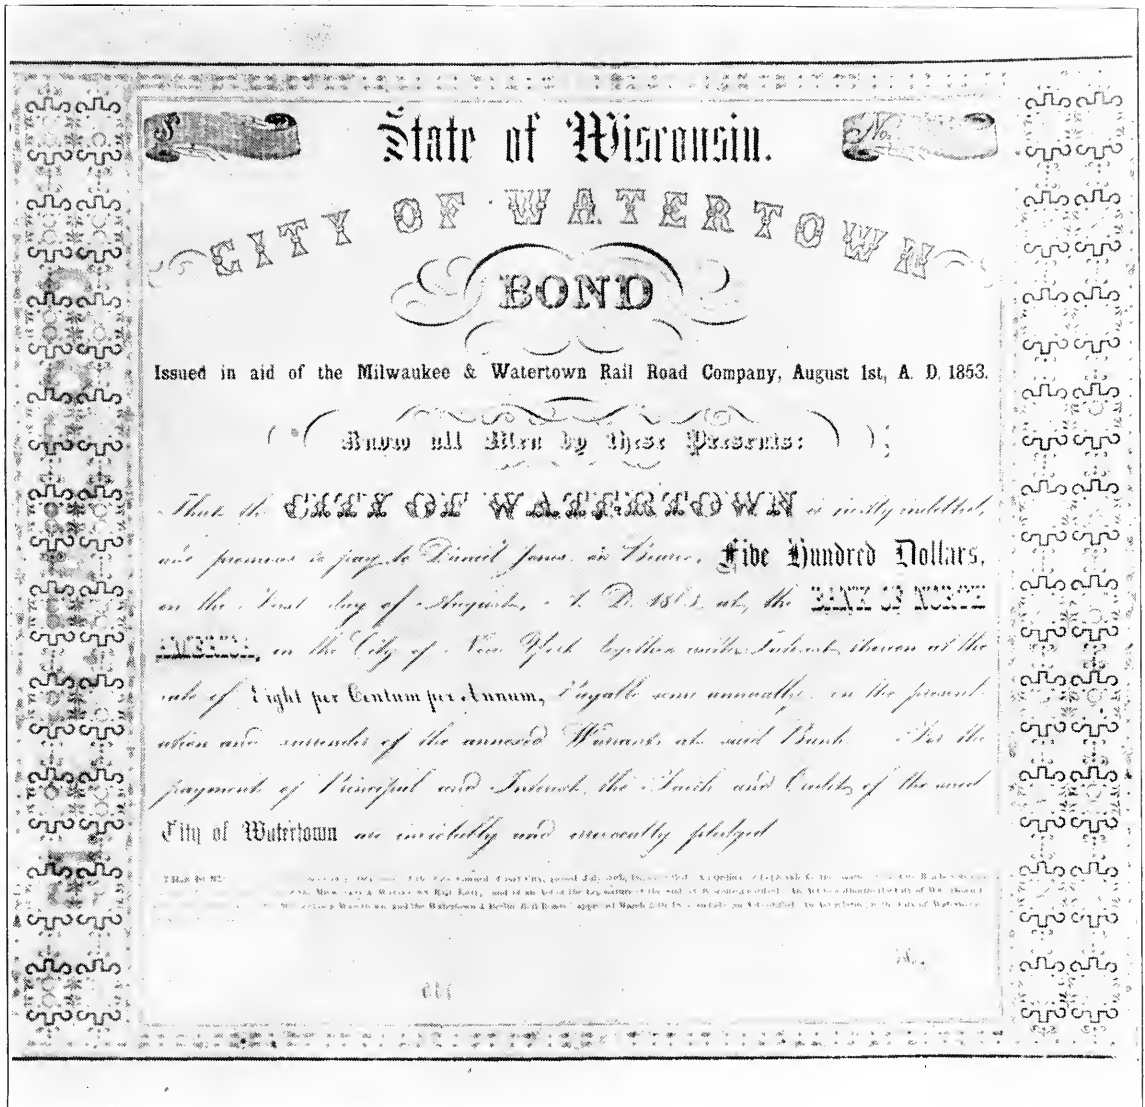 $
State of Wisconsin.
No.
CITY OF WATERTOWN
BOND
Issued in aid of the Milwaukee & Watertown Rail Road Company, August 1st, A. D. 1853.
Know all Men by these Presents:
That the CITY OF WATERTOWN is justly indebted,
and promises to pay to Daniel Jones or Bearer, Five Hundred Dollars,
on the First day of August, A. D. 1863, at the BANK OF NORTH
AMERICA, in the City of New York together with Interest thereon at the
rate of Eight per Centum per Annum, Payable semi annually on the present-
ation and surrender of the annexed Warrants at said Bank. For the
payment of Principal and Interest, the Faith and Credit, of the said
City of Watertown are inviolably and irrevocably pledged
Milwaukee & Watertown Rail Road, and of an Act of the Legislature of the
and the Watertown & Berlin Rail Road approved March